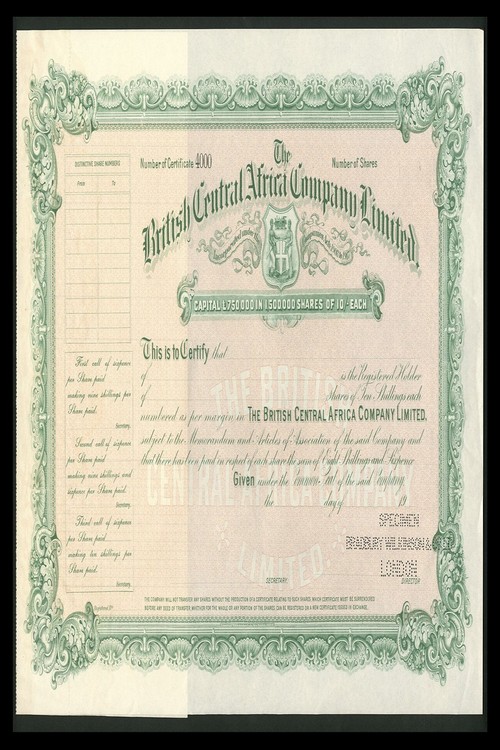 Number of Certificate 4000
The
Number of Shares
British Central Africa Company Limited.
CAPITAL £750000 IN 1500000 SHARES OF 10/- EACH
DISTINCTIVE SHARE NUMBERS
From To
This is to Certify that
of is the Registered Holder
of Shares of Ten Shillings each
numbered as per margin in THE BRITISH CENTRAL AFRICA COMPANY LIMITED.
subject to the Memorandum and Articles of Association of the said Company and
that there has been paid in respect of each share the sum of Eight Shillings and Sixpence
Given under the Common Seal of the said Company
the day of 19
THE BRITISH
CENTRAL AFRICA COMPANY
LIMITED.
First call of sixpence
per Share paid
making nine shillings per
Share paid.
Secretary.
Second call of sixpence
per Share paid
making nine shillings and
sixpence per Share paid.
Secretary.
Third call of sixpence
per Share paid
making ten shillings per
Share paid.
Secretary.
SPECIMEN
BRADBURY WILKINSON & CO
LONDON
SECRETARY.
DIRECTOR
THE COMPANY WILL NOT TRANSFER ANY SHARES WITHOUT THE PRODUCTION OF A CERTIFICATE RELATING TO SUCH SHARES, WHICH CERTIFICATE MUST BE SURRENDERED
BEFORE ANY DEED OF TRANSFER WHETHER FOR THE WHOLE OR ANY PORTION OF THE SHARES, CAN BE REGISTERED OR A NEW CERTIFICATE ISSUED IN EXCHANGE.